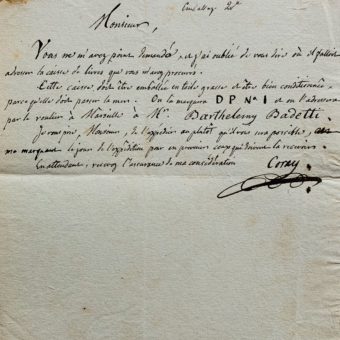 Monsieur,
Vous ne m'avez point demandé, et j'ai oublié de vous dire où il falloit
adresser la caisse de livres que vous m'avez procurés.
Cette caisse doit être emballée en toile grasse et être bien conditionnée,
parce qu'elle doit passer la mer. On la marquera D P N° 1 et on l'adressera
par le roulier à Marseille à Mr. Barthelemy Badetti
Je vous prie, Monsieur, de l'expédier au plutôt qu'il vous sera possible, en
me marquant le jour de l'expédition pour en prévenir ceux qui doivent la recevoir.
En attendant, recevez l'assurance de ma considération
Coray.